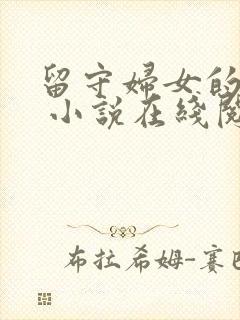 留守婦女的
小説在綫閱
布拉希姆-賽巴